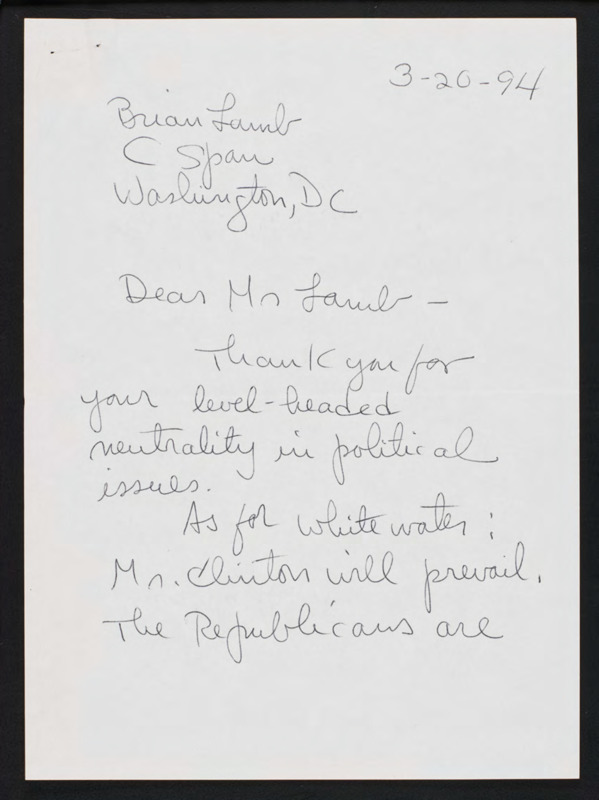 3-20-94
Brian Lamb
C Span
Washington, DC
Dear Mr Lamb -
Thank you for
your level-headed
neutrality in political
issues.
As for Whitewater:
Mr. Clinton will prevail.
The Republicans are